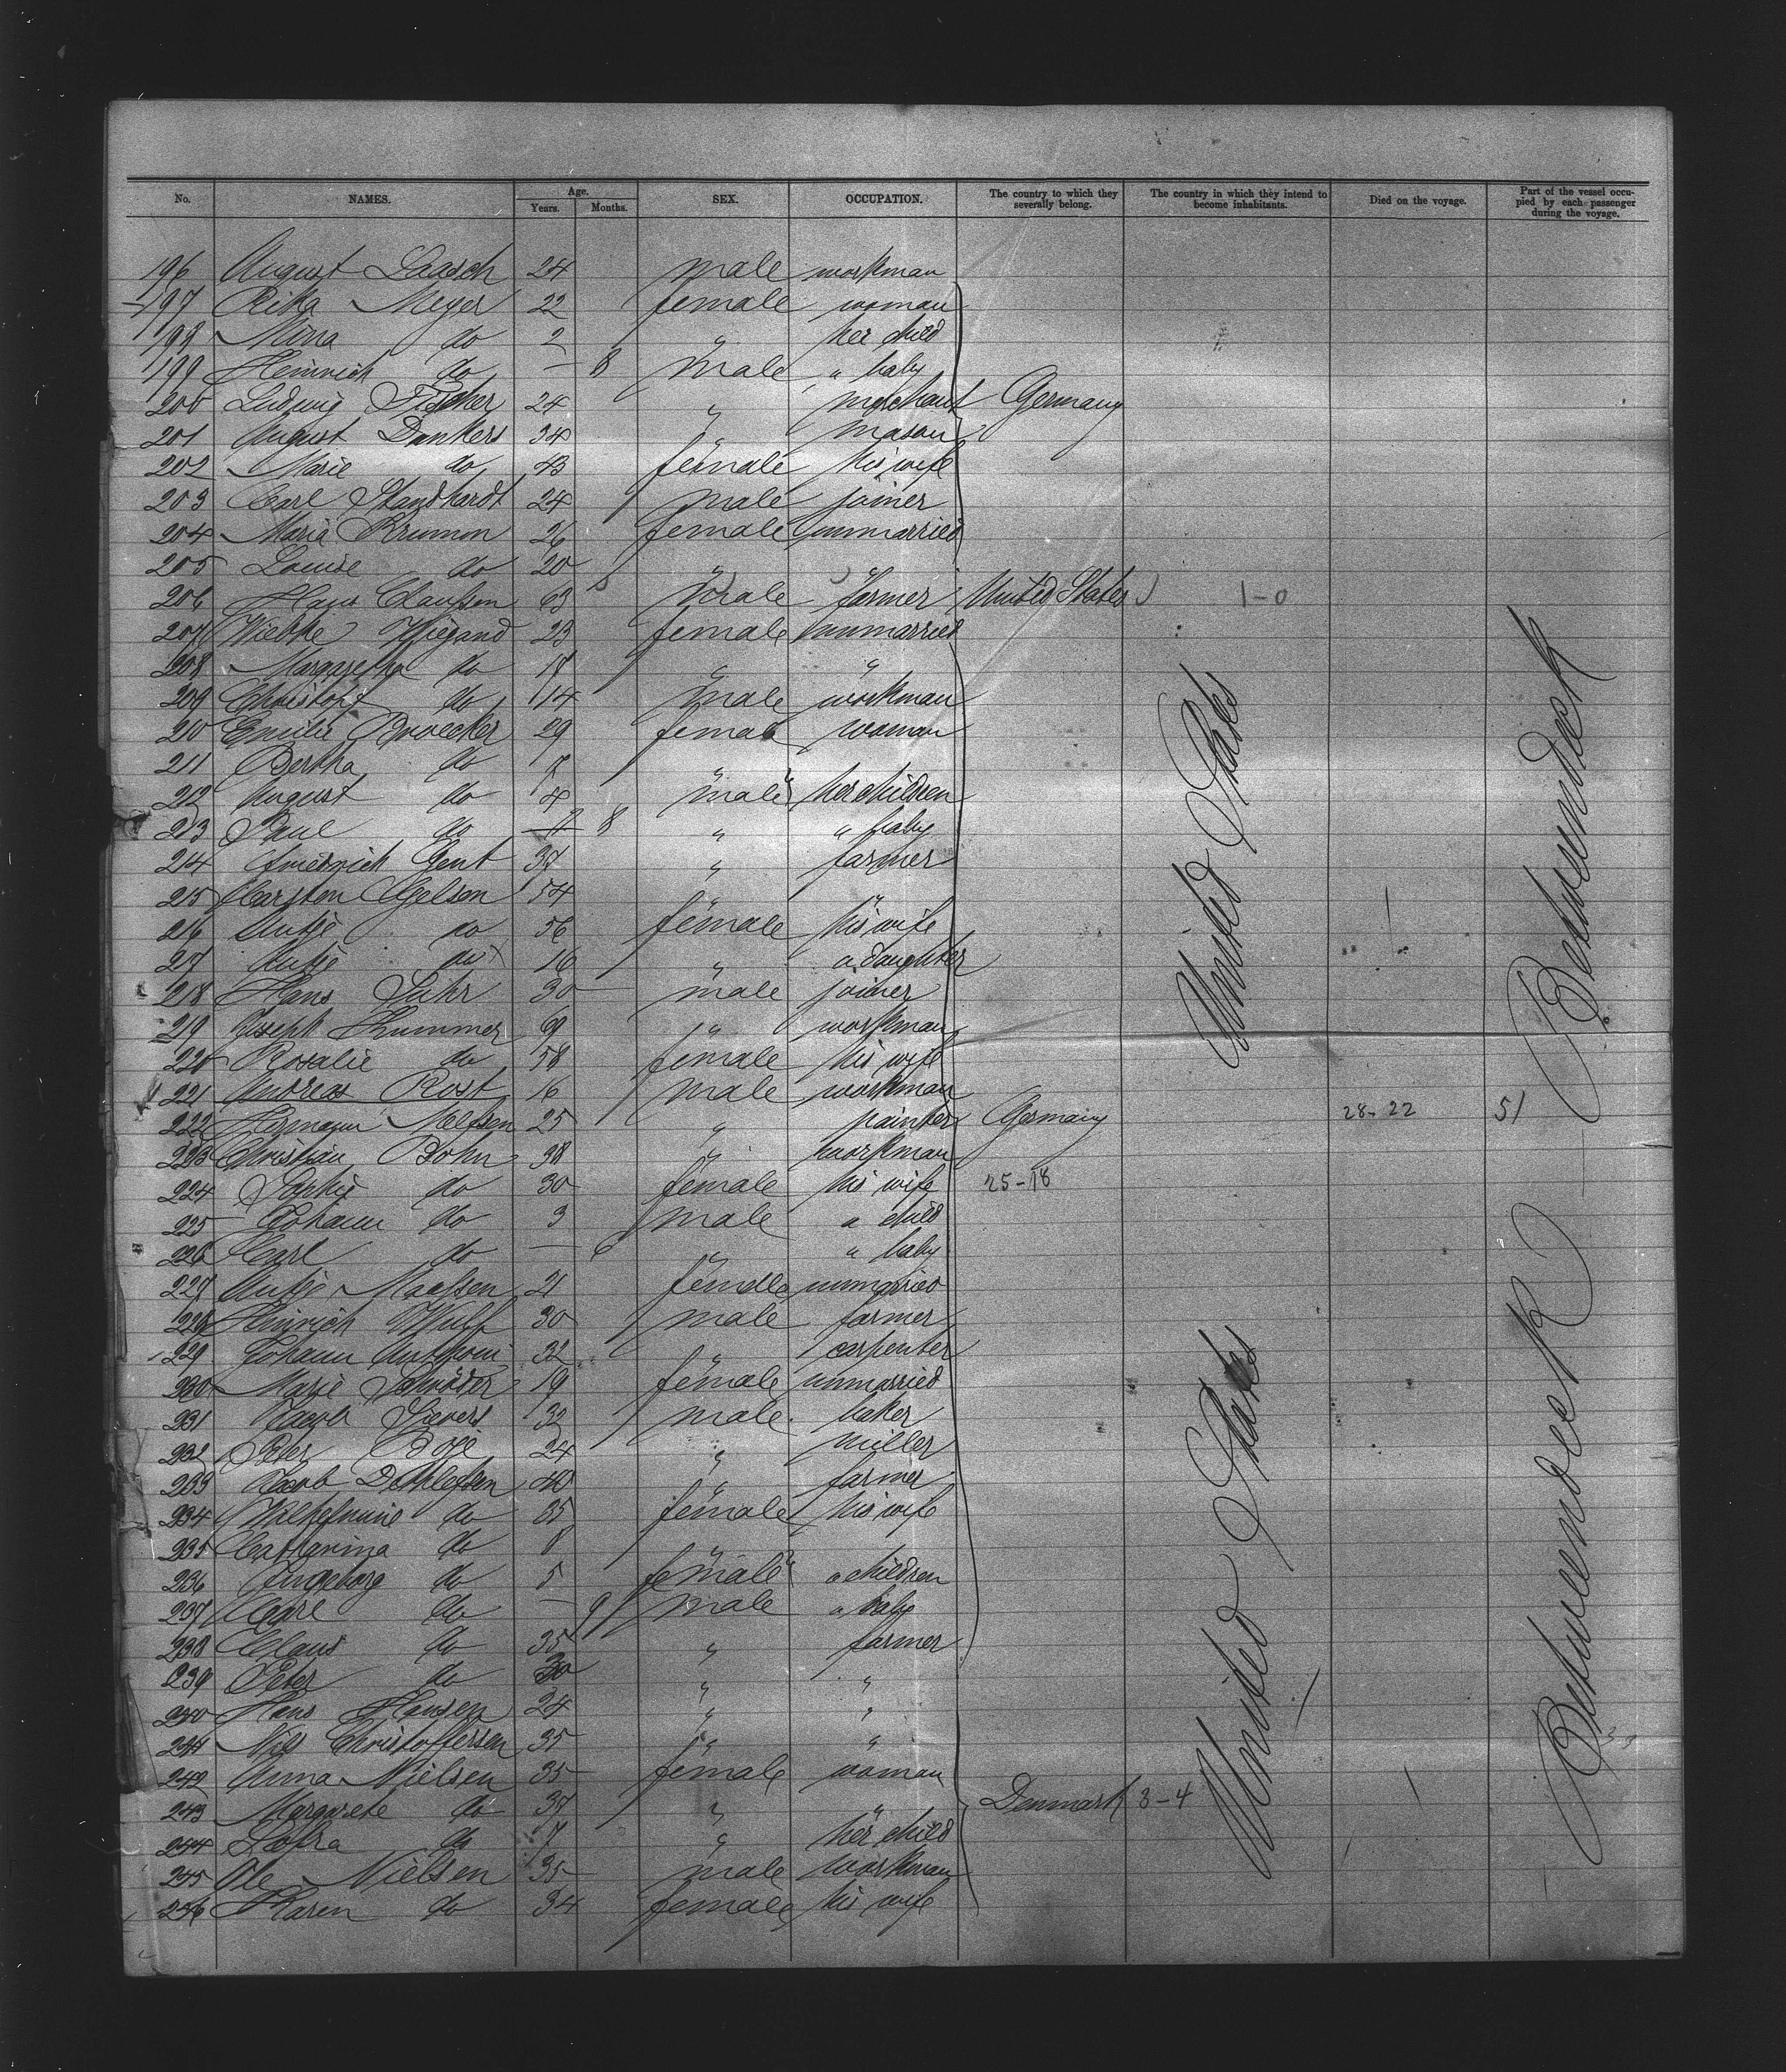 No. NAMES. Age. Years. Months. SEX. OCCUPATION. The country to which they severally belong. The country in which they intend to become inhabitants. Died on the voyage. Part of the vessel occupied by each passenger during the voyage.
196 August Laasch 24 male workman
197 Rika Meyer 22 female woman
198 Mina do 2 " her child
199 Heinrich do — 8 male " baby
200 Ludwig Fischer 24 " merchant Germany
201 August Dankers 34 " mason
202 Marie do 43 female his wife
203 Carl Standhardt 24 male joiner
204 Maria Krumm 26 female unmarried
205 Louise do 20 " "
206 Hans Claussen 63 male farmer United States 1-0
207 Wiebke Wiegand 23 female unmarried
208 Margaretha do 18 " "
209 Christoph do 14 male workman
210 Emilie Broecker 29 female woman
211 Bertha do 7 "
212 August do 4 male her children
213 Paul do 8 " " baby
214 Friedrich Gent 37 " farmer
215 Carsten 54 "
216 Antje do 56 female his wife
217 Antje do 16 " " daughter
218 Hans Suhr 30 male joiner
219 Joseph 69 " workman
220 Rosalie do 58 female his wife
221 Andreas Rost 16 male workman
222 Hermann 25 " painter Germany 28-22 51
223 Christian Bohn 38 " workman
224 Sophie do 30 female his wife 25-18
225 Johann do 3 male " child
226 Karl do — 6 " " baby
227 Antje Maassen 21 female unmarried
228 Heinrich Wulf 30 male farmer
229 Johann Anthoni 32 " carpenter
230 Marie Schröder 19 female unmarried
231 Jacob Sievers 32 male baker
232 Peter Boje 24 " miller
233 Jacob Dethlefsen 40 " farmer
234 Wilhelmine do 35 female his wife
235 Catharina do 8 "
236 Ingeborg do 5 female " children
237 Carl do — 9 male " baby
238 Claus do 35 " farmer
239 Peter do 30 " "
240 Hans Hansen 24 " "
241 Nils Christoffersen 35 " "
242 Anna Nielsen 35 female woman
243 Margarete do 37 " " Denmark 3-4
244 do 7 " her child
245 Ole Nielsen 35 male workman
246 Karen do 34 female his wife
United States
Betweendeck
United States
Betweendeck